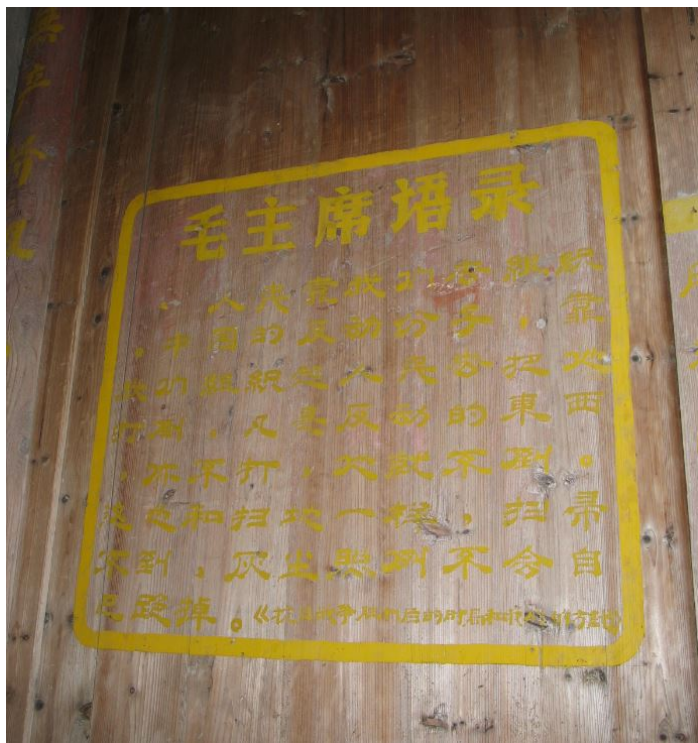 毛主席语录
、人民靠我们去组织
，中国的反动分子，靠
我们组织起人民去把他
打倒，凡是反动的東西
，你不打，他就不倒。
这也和扫地一样，扫帚
不到，灰尘照例不会自
己跑掉。《抗日战争胜利后的时局和我们的方针》